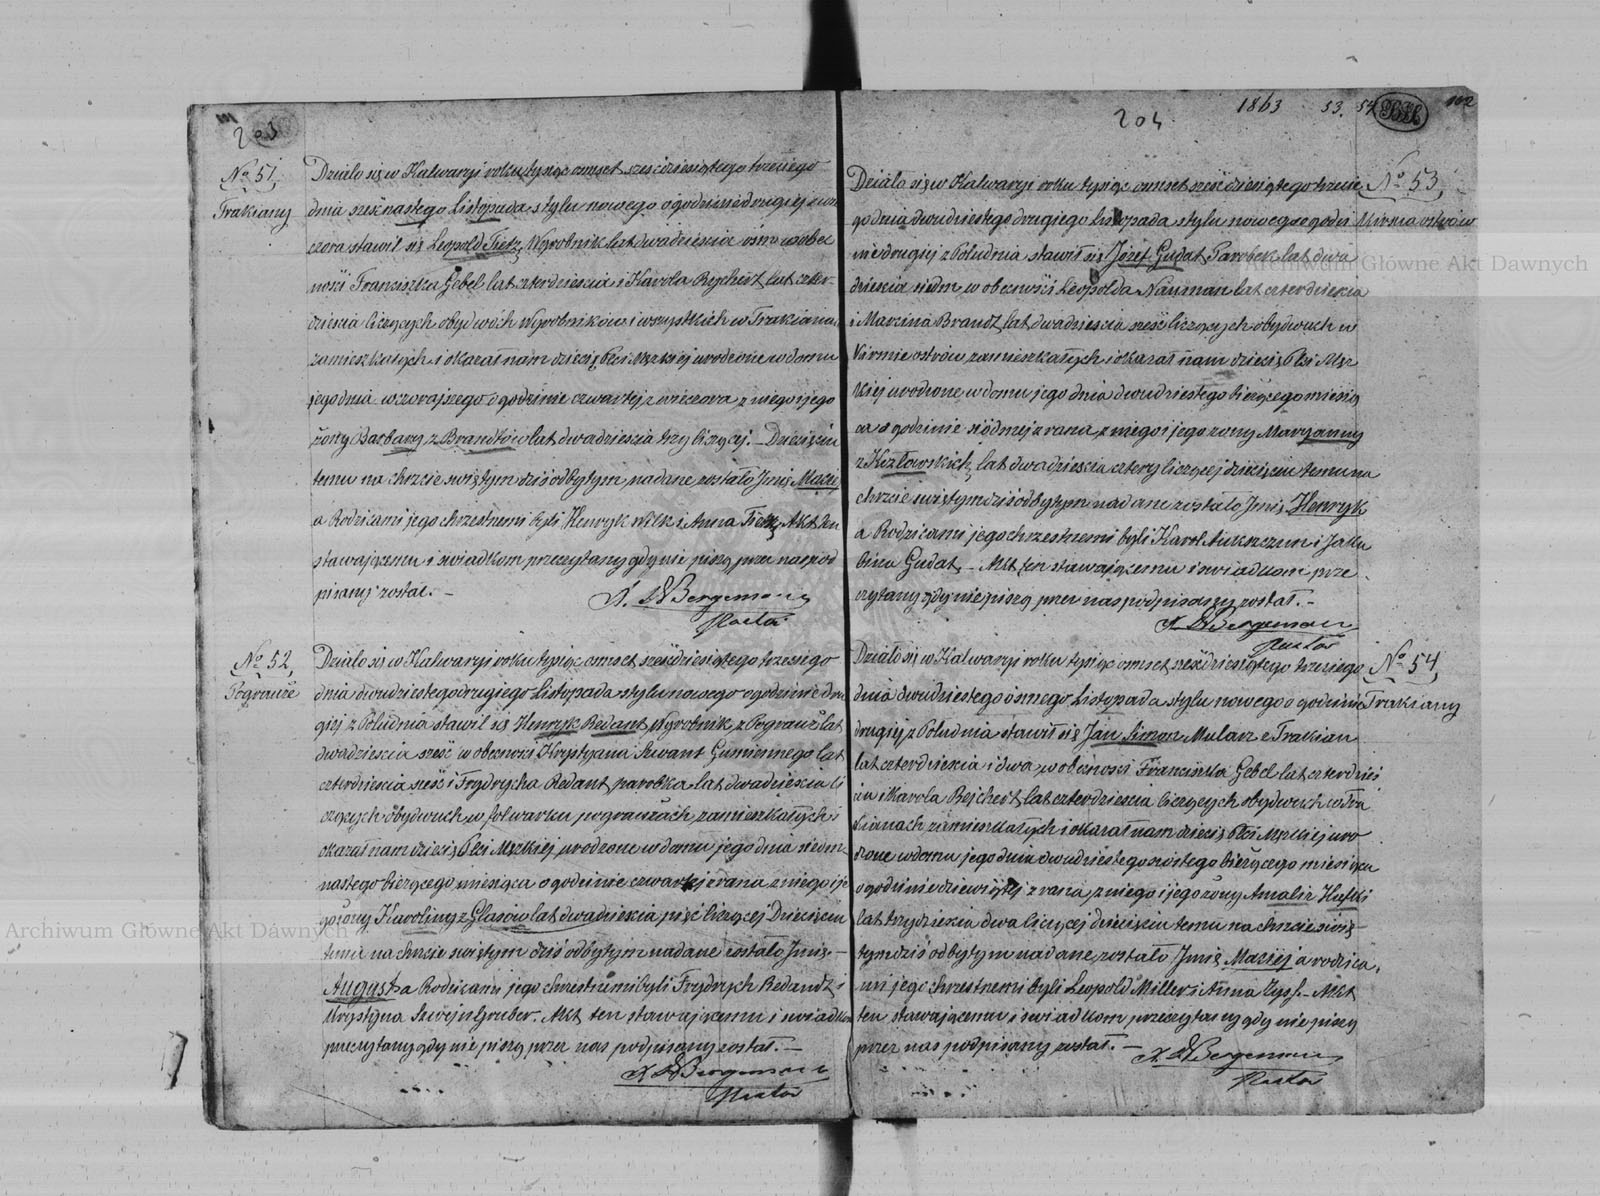 203
№ 51
Trakiany
Działo się w Kalwaryi roku tysiąc omset sześćdziesiątego trzeciego
dnia szesnastego Listopada stylu nowego o godzinie drugiej
czora stawił się Leopold Tietz Wyrobnik lat dwadzieścia ośm w obec
ności Franciszka Gebel lat czterdzieścia i Karola Rejchert lat czter-
dzieścia liczących obydwóch Wyrobników i wszystkich w Trakianach
zamieszkałych i okazał nam dziecię Płci Męzkiej urodzone w domu
jego dnia wczorajszego o godzinie czwartej z wieczora z niego i jego
żony Barbary z Brandtów lat dwadzieścia trzy liczącej. – Dziecięciu
temu na chrzcie świętym dziś odbytym nadane zostało Imię Maciej
a Rodzicami jego chrzestnemi byli Henryk Wilk i Anna Tietz Akt ten
stawającemu i świadkom przeczytany gdy nie piszą przez nas pod
pisany został. –
Bergemann
Pastor
№ 52
Pograuże
Działo się w Kalwaryi roku tysiąc omset sześćdziesiątego trzeciego
dnia dwudziestego drugiego Listopada stylu nowego o godzinie dru
giej z Południa stawił się Henryk Redant Wyrobnik z Pograuż lat
dwadzieścia sześć w obecności Krystyana Szwant Gumiennego lat
czterdzieścia sześć i Frydrycha Redant parobka lat dwadzieścia li
czących obydwuch w folwarku pograużach zamieszkałych i
okazał nam dziecię Płci Męzkiej urodzone w domu jego dnia siedm
nastego bieżącego miesiąca o godzinie czwartej z rana z niego i je
go żony Karoliny z Glasów lat dwadzieścia pięć liczącej Dziecięciu
temu na chrzcie świętym dziś odbytym nadane zostało Imię –
August a Rodzicami jego chrzestnemi byli Frydrych Redandt i
Krystyna Szwejngruber. Akt ten stawającemu i świadkom
przeczytany gdy nie piszą przez nas podpisany został. –
Bergemann
Pastor
204
1863 53. 54 102
№ 53
Działo się w Kalwaryi roku tysiąc omset sześćdziesiątego trzecie
go dnia dwudziestego drugiego Listopada stylu nowego o godzi
nie drugiej z Południa stawił się Józef Gudat Parobek lat dwa
dzieścia siedm w obecności Leopolda Nauman lat czterdzieścia
i Marcina Brandt lat dwadzieścia sześć liczących obydwuch w
Kirsnie ostrów zamieszkałych i okazał nam dziecię Płci Męz
kiej urodzone w domu jego dnia dwudziestego bieżącego miesią
ca o godzinie siódmej z rana z niego i jego żony Maryanny
z Kozłowskich lat dwadzieścia cztery liczącej dziecięciu temu na
chrzcie świętym dziś odbytym nadane zostało Imię Henryk
a Rodzicami jego chrzestnemi byli Karol i Jaku
bina Gudat. – Akt ten stawającemu i świadkom prze
czytany gdy nie piszą przez nas podpisany został. –
Bergemann
Pastor
№ 54
Trakiany
Działo się w Kalwaryi roku tysiąc omset sześćdziesiątego trzeciego
dnia dwudziestego ósmego Listopada stylu nowego o godzinie
drugiej z Południa stawił się Jan Siman Mularz z Trakian
lat czterdzieścia i dwa w obecności Franciszka Gebel lat czterdzieś
cia i Karola Rejchert lat czterdzieścia liczących obydwuch w Tra
kianach zamieszkałych i okazał nam dziecię Płci Męzkiej uro
dzone w domu jego dnia dwudziestego szóstego bieżącego miesiąca
o godzinie dziewiątej z rana z niego i jego żony Amalii
lat trzydzieścia dwa liczącej dziecięciu temu na chrzcie świę-
tym dziś odbytym nadane zostało Imię Maciej a rodzica-
mi jego chrzestnemi byli Leopold Miller i Anna Zyss. – Akt
ten stawającemu i świadkom przeczytany gdy nie piszą
przez nas podpisany został. –
Bergemann
Pastor
Archiwum Główne Akt Dawnych
Archiwum Główne Akt Dawnych